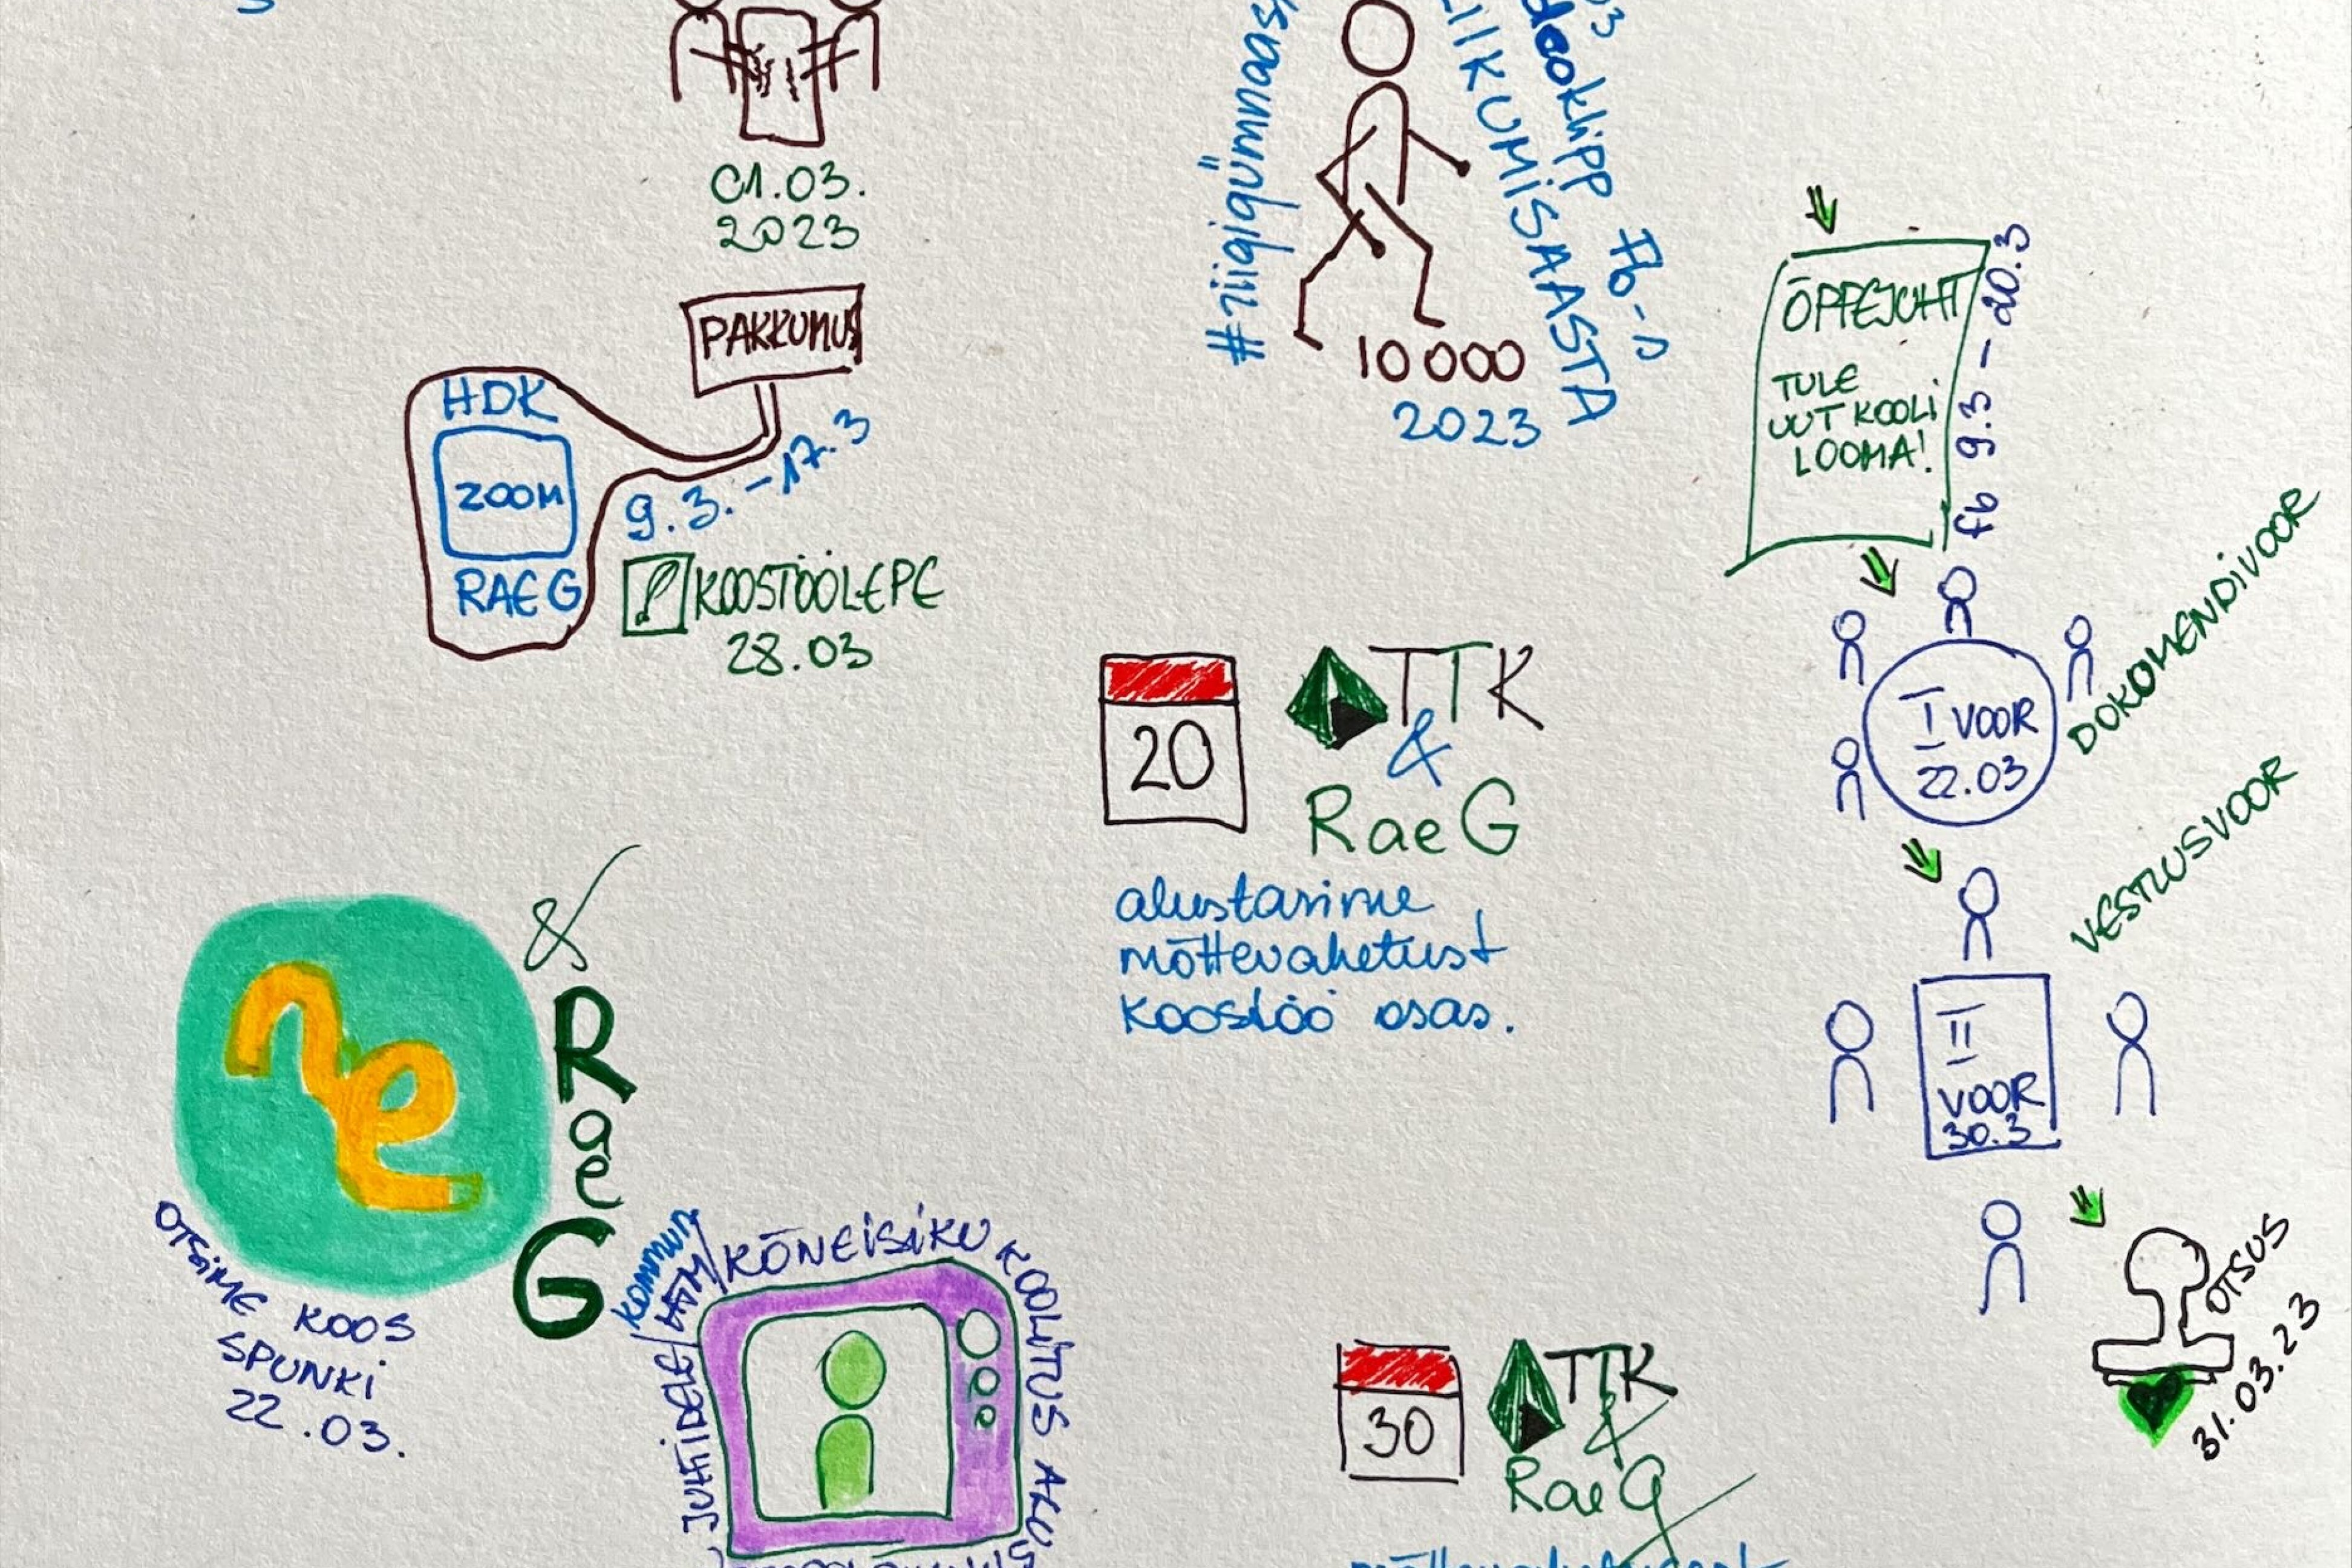 01.03.
2023
#riigigümnaas
LIIKUMISAASTA
deoklipp fb-s
03
10 000
2023
PAKKUMUS
HDK
ZOOM
RAE G
9.3. - 17.3
KOOSTÖÖLEPE
28.03
ÕPPEJUHT
TULE
UUT KOOLI
LOOMA!
fb 9.3 - 20.3
I VOOR
22.03
DOKOMENDIVOOR
VESTLUSVOOR
II
VOOR
30.3
OTSUS
31.03.23
20
TTK
&
Rae G
alustasime
mõttevahetust
koostöö osas.
ne
&
Rae
G
OTSIME KOOS
SPUNKI
22.03.
JUHTIDELE
KÕNEISIKU KOOLITUS
30
TTK
&
Rae G